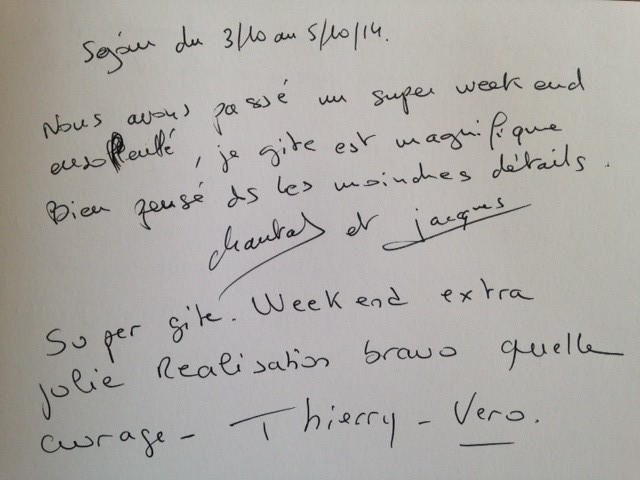 Séjour du 3/10 au 5/10/14.
Nous avons passé un super week end
ensoleillé, je gite est magnifique
Bien pensé ds les moindres détails.
chantal et jacques
Super gite. Week end extra
jolie Realisation bravo quelle
ouvrage - Thierry - Vero.